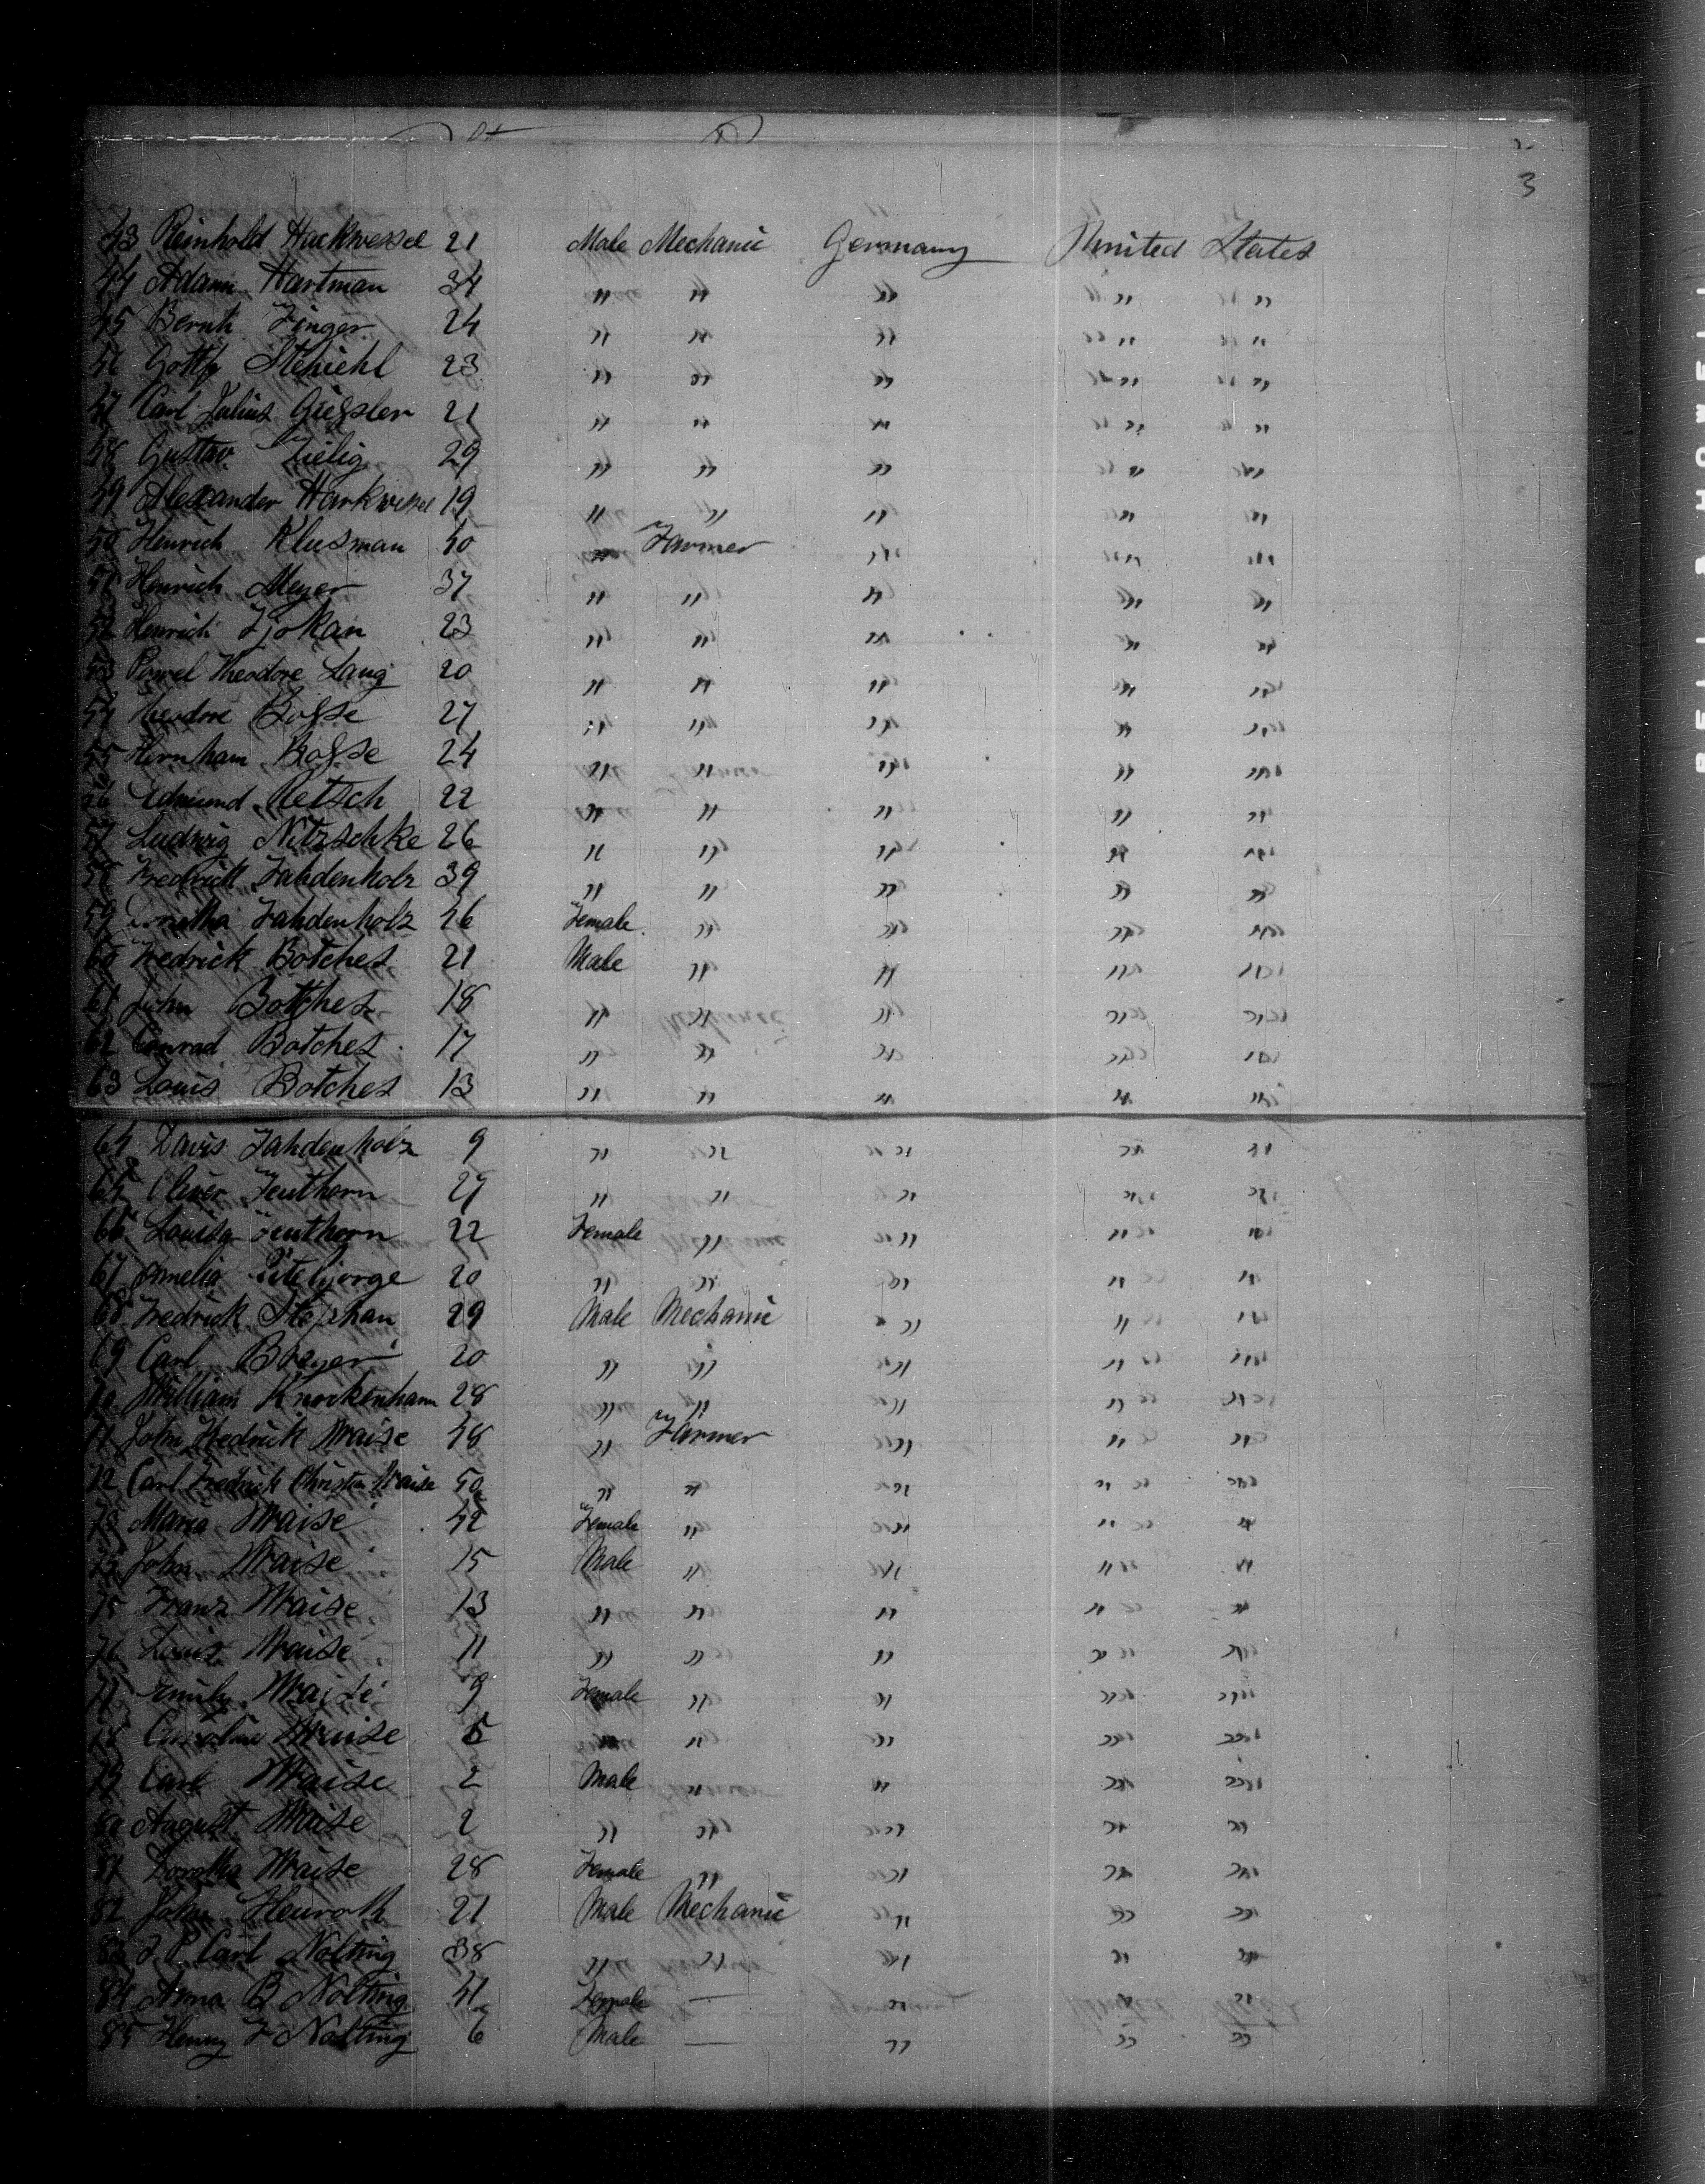 3
43 Reinhold Hackwessel 21 Male Mechanic Germany United States
44 Adam Hartman 34 " " " " "
45 Bernh Finger 24 " " " " "
46 Gottf 23 " " " " "
47 Carl Julius Giessler 21 " " " " "
48 Gustav Zielig 29 " " " " "
49 Alexander Harkwessel 19 " " " " "
50 Henrich Klusman 40 " Farmer " " "
51 Henrich Meyer 37 " " " " "
52 Henrich 23 " " " " "
53 Powel Theodore Lang 20 " " " " "
54 Theodore Bosse 27 " " " " "
55 Hernham Bosse 24 " " " " "
56 Edmund Retsch 22 " " " " "
57 Ludwig Nitzschke 26 " " " " "
58 Fredrick Fahdenholz 39 " " " " "
59 Fahdenholz 46 Female " " " "
60 Fredrick Botches 21 Male " " " "
61 John Botches 18 " " " " "
62 Conrad Botches 17 " " " " "
63 Louis Botches 13 " " " " "
64 Davis Fahdenholz 9 " " " " "
65 Oliver Feuthorn 27 " " " " "
66 Louisa Feuthorn 22 Female " " " "
67 Amelia 20 " " " " "
68 Fredrick Stephan 29 Male Mechanic " " "
69 Carl Breyer 20 " " " " "
70 William Knockenham 28 " " " " "
71 John Fredrick Waise 48 " Farmer " " "
72 Carl Fredrick Christn Waise 50 " " " " "
73 Maria Waise 42 Female " " " "
74 John Waise 15 Male " " " "
75 Franz Waise 13 " " " " "
76 Louis Waise 11 " " " " "
77 Emily Waise 9 Female " " " "
78 Caroline Waise 5 " " " " "
79 Carl Waise 2 Male " " " "
80 August Waise 2 " " " " "
81 Dorotha Waise 28 Female " " " "
82 John Heuroth 21 Male Mechanic " " "
83 J. P. Carl Nolting 38 " " " " "
84 Anna B Nolting 41 Female — " " "
85 Henry F Nolting 6 Male — " " "